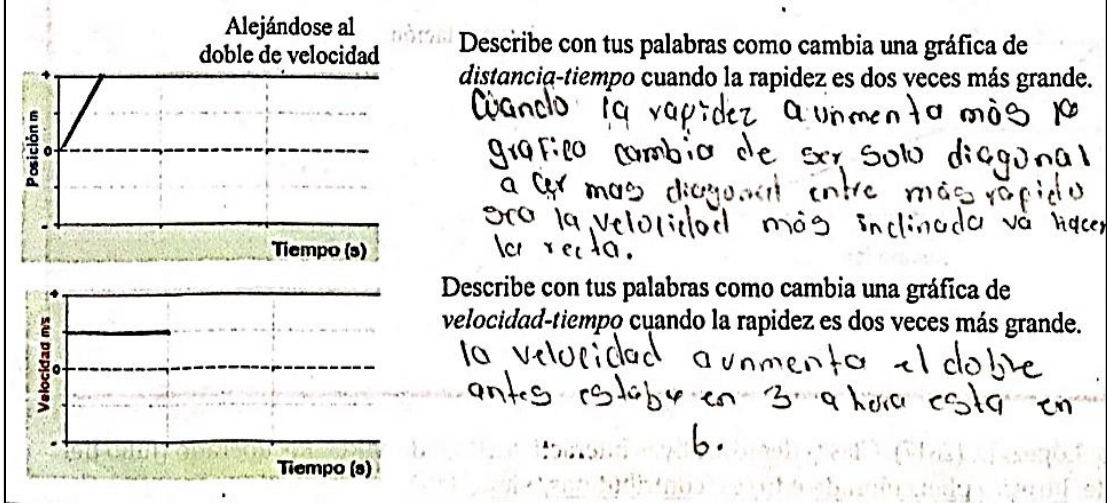 Alejándose al
doble de velocidad
+
Posición m
0
-
Tiempo (s)
Describe con tus palabras como cambia una gráfica de
distancia-tiempo cuando la rapidez es dos veces más grande.
Cuando la rapidez aunmenta más
grafico cambia de ser solo diagonal
a cer mas diagonal entre más rapido
sea la velocidad más inclinada va hacer
la recta.
+
Velocidad m/s
0
-
Tiempo (s)
Describe con tus palabras como cambia una gráfica de
velocidad-tiempo cuando la rapidez es dos veces más grande.
la velocidad aunmenta el doble
antes estaba en 3 ahora esta en
6.